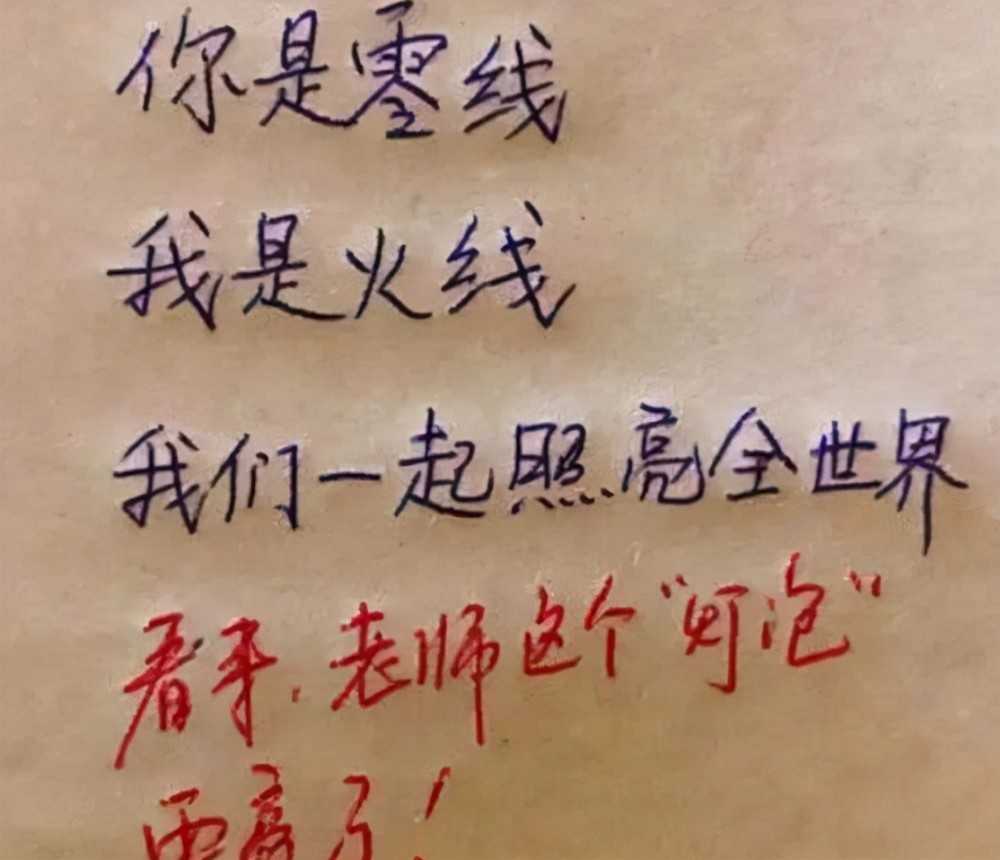 你是零线
我是火线
我们一起照亮全世界
看来,老师这个“灯泡”
要亮了!